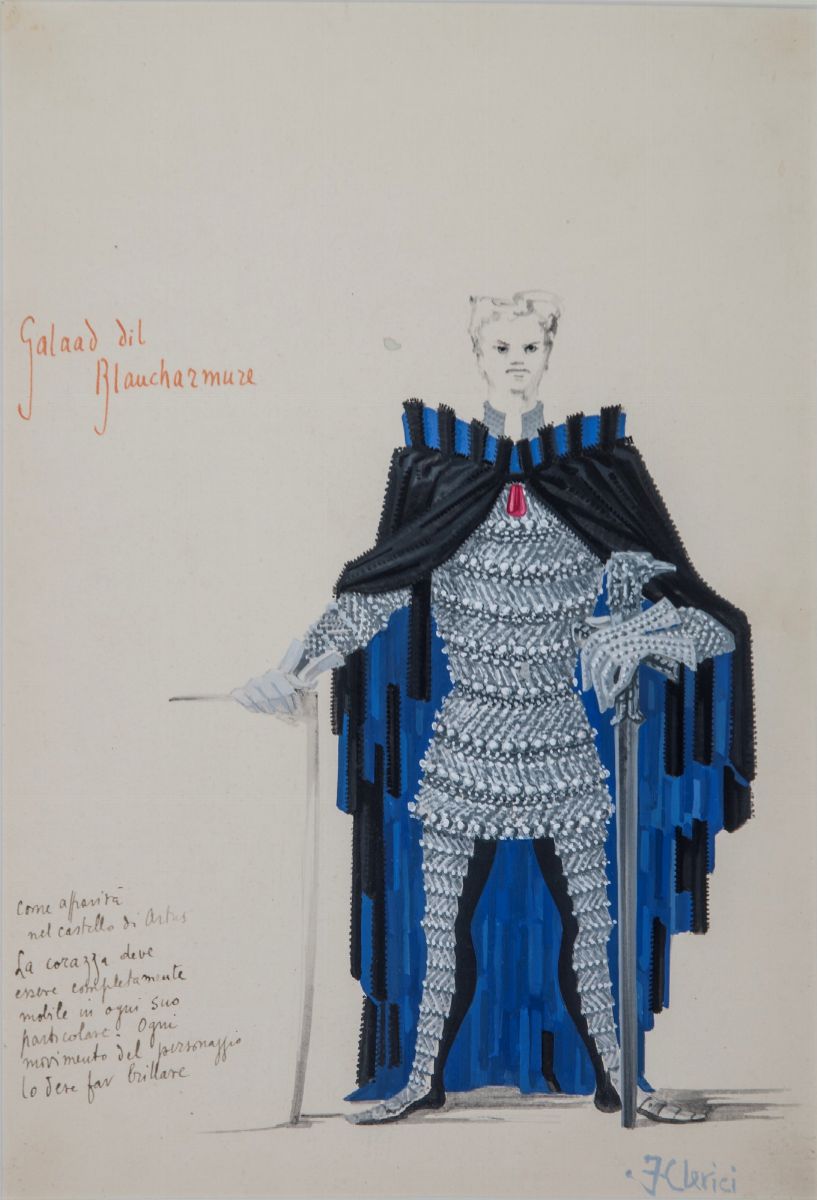 Galaad dil
Blancharmure
come apparirà
nel castello di Artus
La corazza deve
essere completamente
mobile in ogni suo
particolare. Ogni
movimento del personaggio
lo deve far brillare
F. Clerici